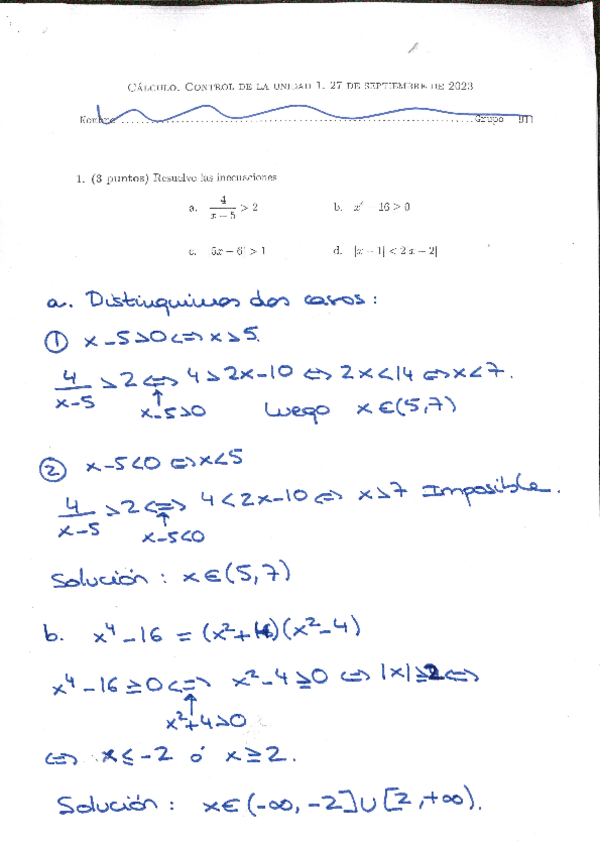 CÁLCULO. CONTROL DE LA UNIDAD 1. 27 DE SEPTIEMBRE DE 2023
Nombre ........ Grupo 911
1. (3 puntos) Resuelve las inecuaciones
a. 4/(x−5) > 2 b. x⁴ − 16 ≥ 0
c. |5x − 6| > 1 d. |x − 1| < 2|x − 2|
a. Distinguimos dos casos:
① x−5>0 ⇔ x>5.
4/(x−5) > 2 ⇔ 4>2x−10 ⇔ 2x<14 ⇔ x<7.
↑ x−5>0 Luego x∈(5,7)
② x−5<0 ⇔ x<5
4/(x−5) > 2 ⇔ 4<2x−10 ⇔ x>7 Imposible.
↑ x−5<0
Solución: x∈(5,7)
b. x⁴−16 = (x²+4)(x²−4)
x⁴−16≥0 ⇔ x²−4≥0 ⇔ |x|≥2 ⇔
↑ x²+4>0
⇔ x≤−2 ó x≥2.
Solución: x∈(−∞,−2]∪[2,+∞).